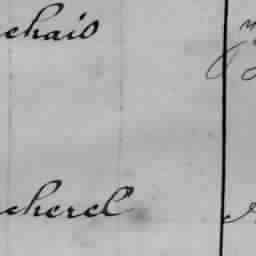 chais
cherel